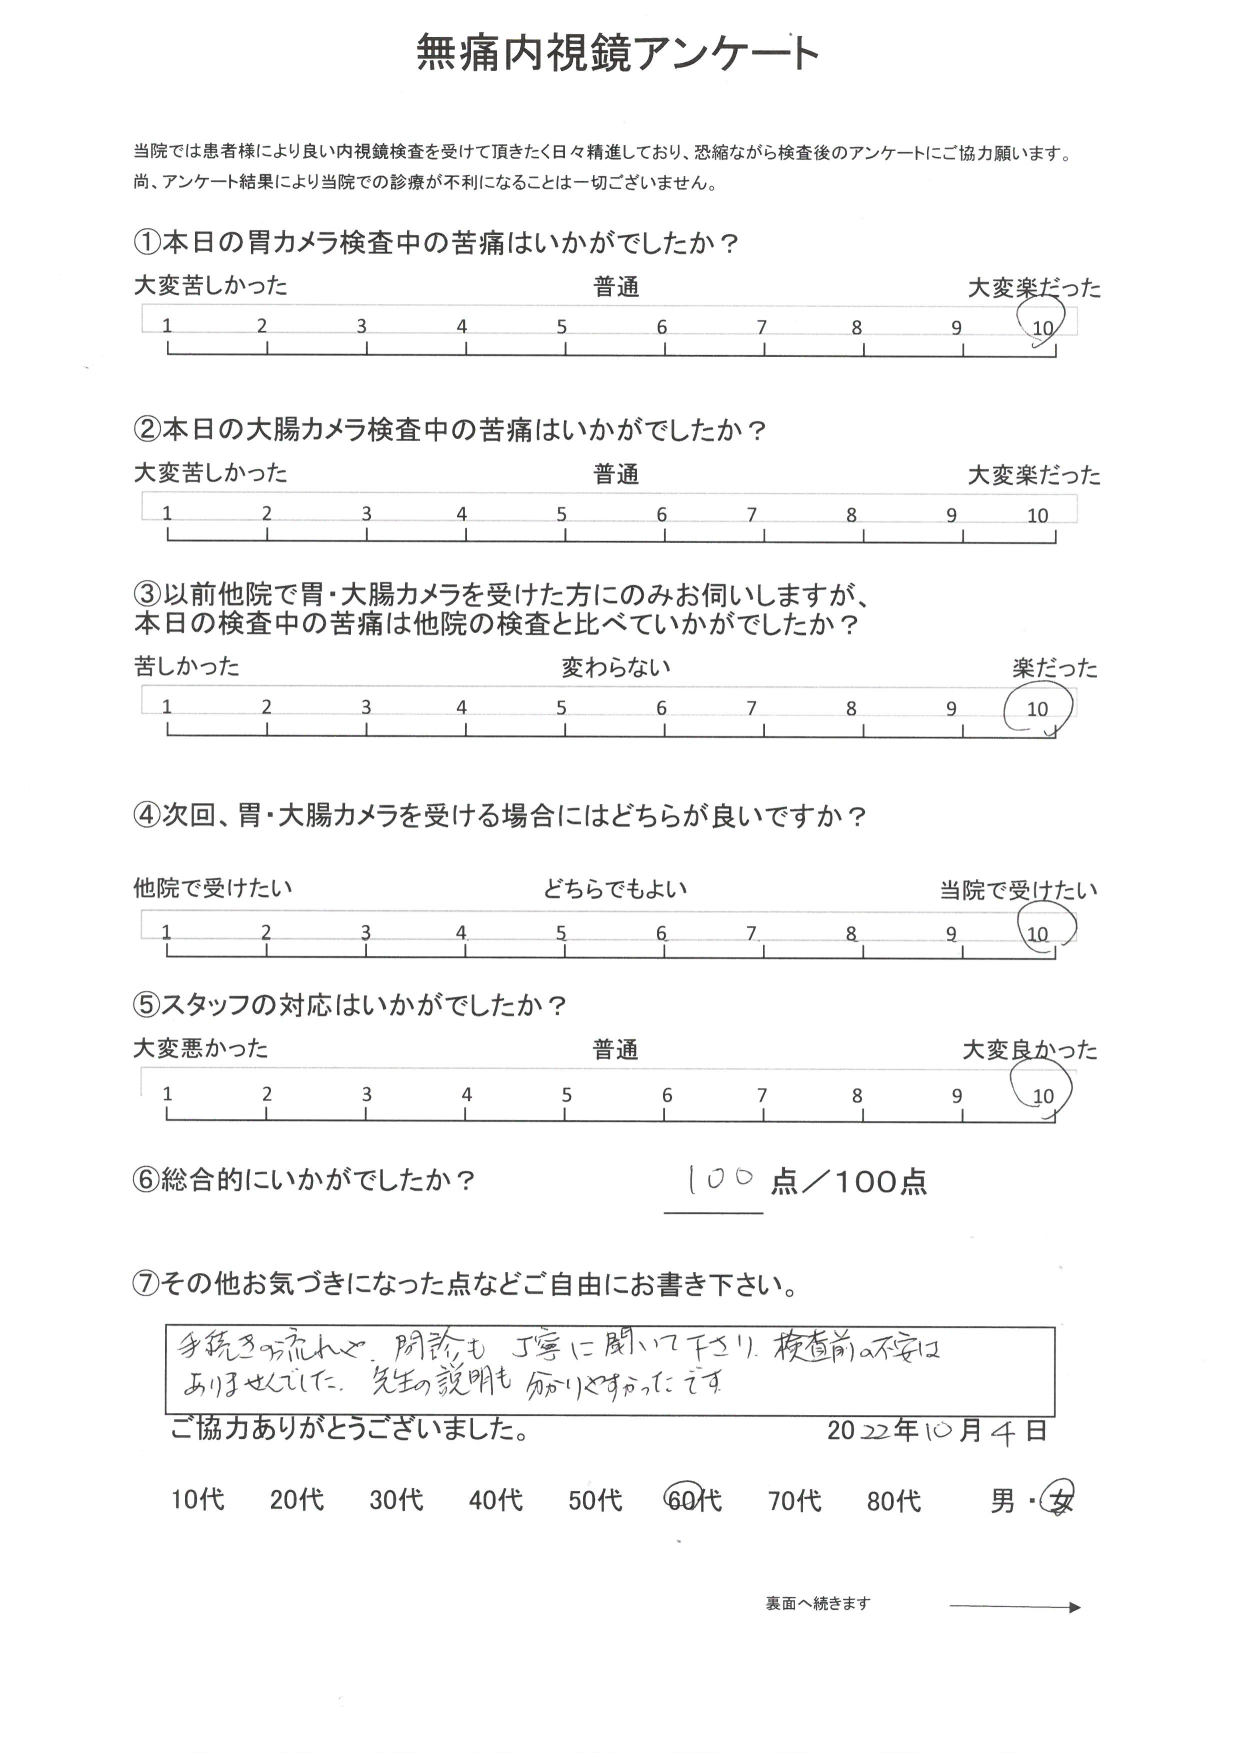 無痛内視鏡アンケート
当院では患者様により良い内視鏡検査を受けて頂きたく日々精進しており、恐縮ながら検査後のアンケートにご協力願います。
尚、アンケート結果により当院での診療が不利になることは一切ございません。
①本日の胃カメラ検査中の苦痛はいかがでしたか？
大変苦しかった 普通 大変楽だった
1 2 3 4 5 6 7 8 9 10
②本日の大腸カメラ検査中の苦痛はいかがでしたか？
大変苦しかった 普通 大変楽だった
1 2 3 4 5 6 7 8 9 10
③以前他院で胃・大腸カメラを受けた方にのみお伺いしますが、
本日の検査中の苦痛は他院の検査と比べていかがでしたか？
苦しかった 変わらない 楽だった
1 2 3 4 5 6 7 8 9 10
④次回、胃・大腸カメラを受ける場合にはどちらが良いですか？
他院で受けたい どちらでもよい 当院で受けたい
1 2 3 4 5 6 7 8 9 10
⑤スタッフの対応はいかがでしたか？
大変悪かった 普通 大変良かった
1 2 3 4 5 6 7 8 9 10
⑥総合的にいかがでしたか？ 100 点／100点
⑦その他お気づきになった点などご自由にお書き下さい。
手続きの流れや、問診も 丁寧に聞いて下さり、検査前の不安は
ありませんでした。先生の説明も 分かりやすかったです
ご協力ありがとうございました。 2022年10月4日
10代 20代 30代 40代 50代 60代 70代 80代 男・女
裏面へ続きます